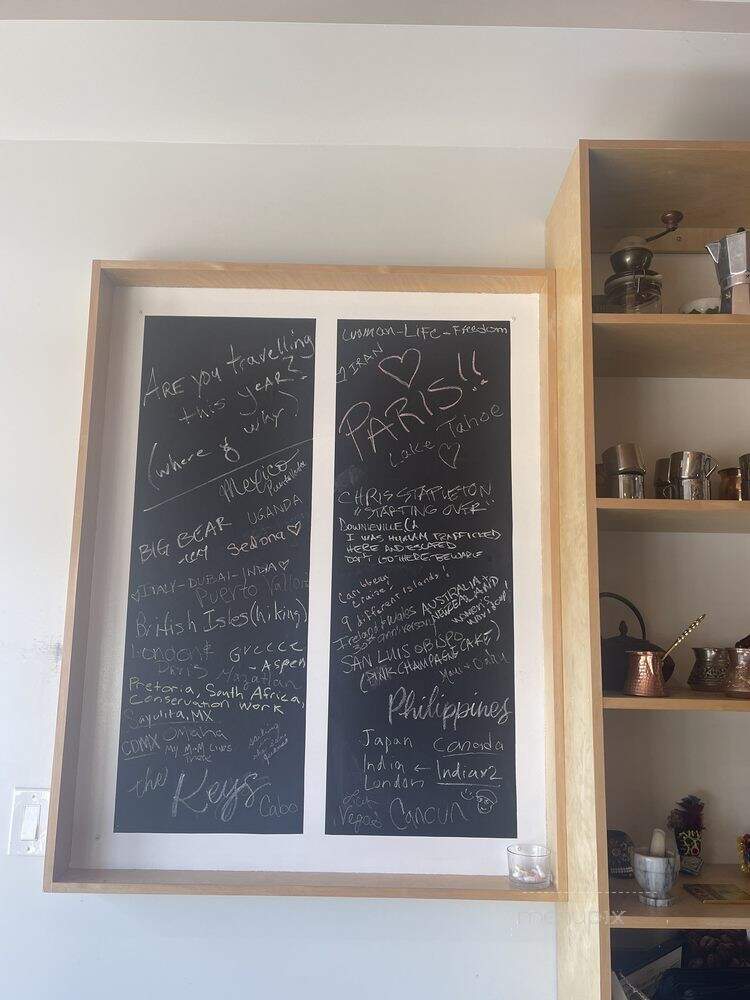 ARE you travelling
this year?
(where & why?)
Mexico
Puerto Vallarta
UGANDA
BIG BEAR
Sedona♡
♡ITALY-DUBAI-INDIA♡
Puerto Vallarta
British Isles(hiking)
London &
Paris
Greece
-Aspen
Mazatlan
Pretoria, South Africa,
Conservation Work
Sayulita, MX
CDMX
Omaha
My Mom Lives
There
the Keys
Cabo
Woman-Life-Freedom
IRAN
♡
PARIS!!
Lake Tahoe
♡
CHRIS STAPLETON
"STARTING OVER"
DOWNIEVILLE CA
I WAS HUMAN TRAFFICKED
HERE AND ESCAPED
DON'T GO THERE. BEWARE
Caribbean
cruise!
9 different Islands!
AUSTRALIA +
NEW ZEALAND
Ireland & Wales
30th anniversary
SAN LUIS OBISPO
(PINK CHAMPAGNE CAKE)
Philippines
Japan
Canada
India ← India x2
London
Vegas
Cancun